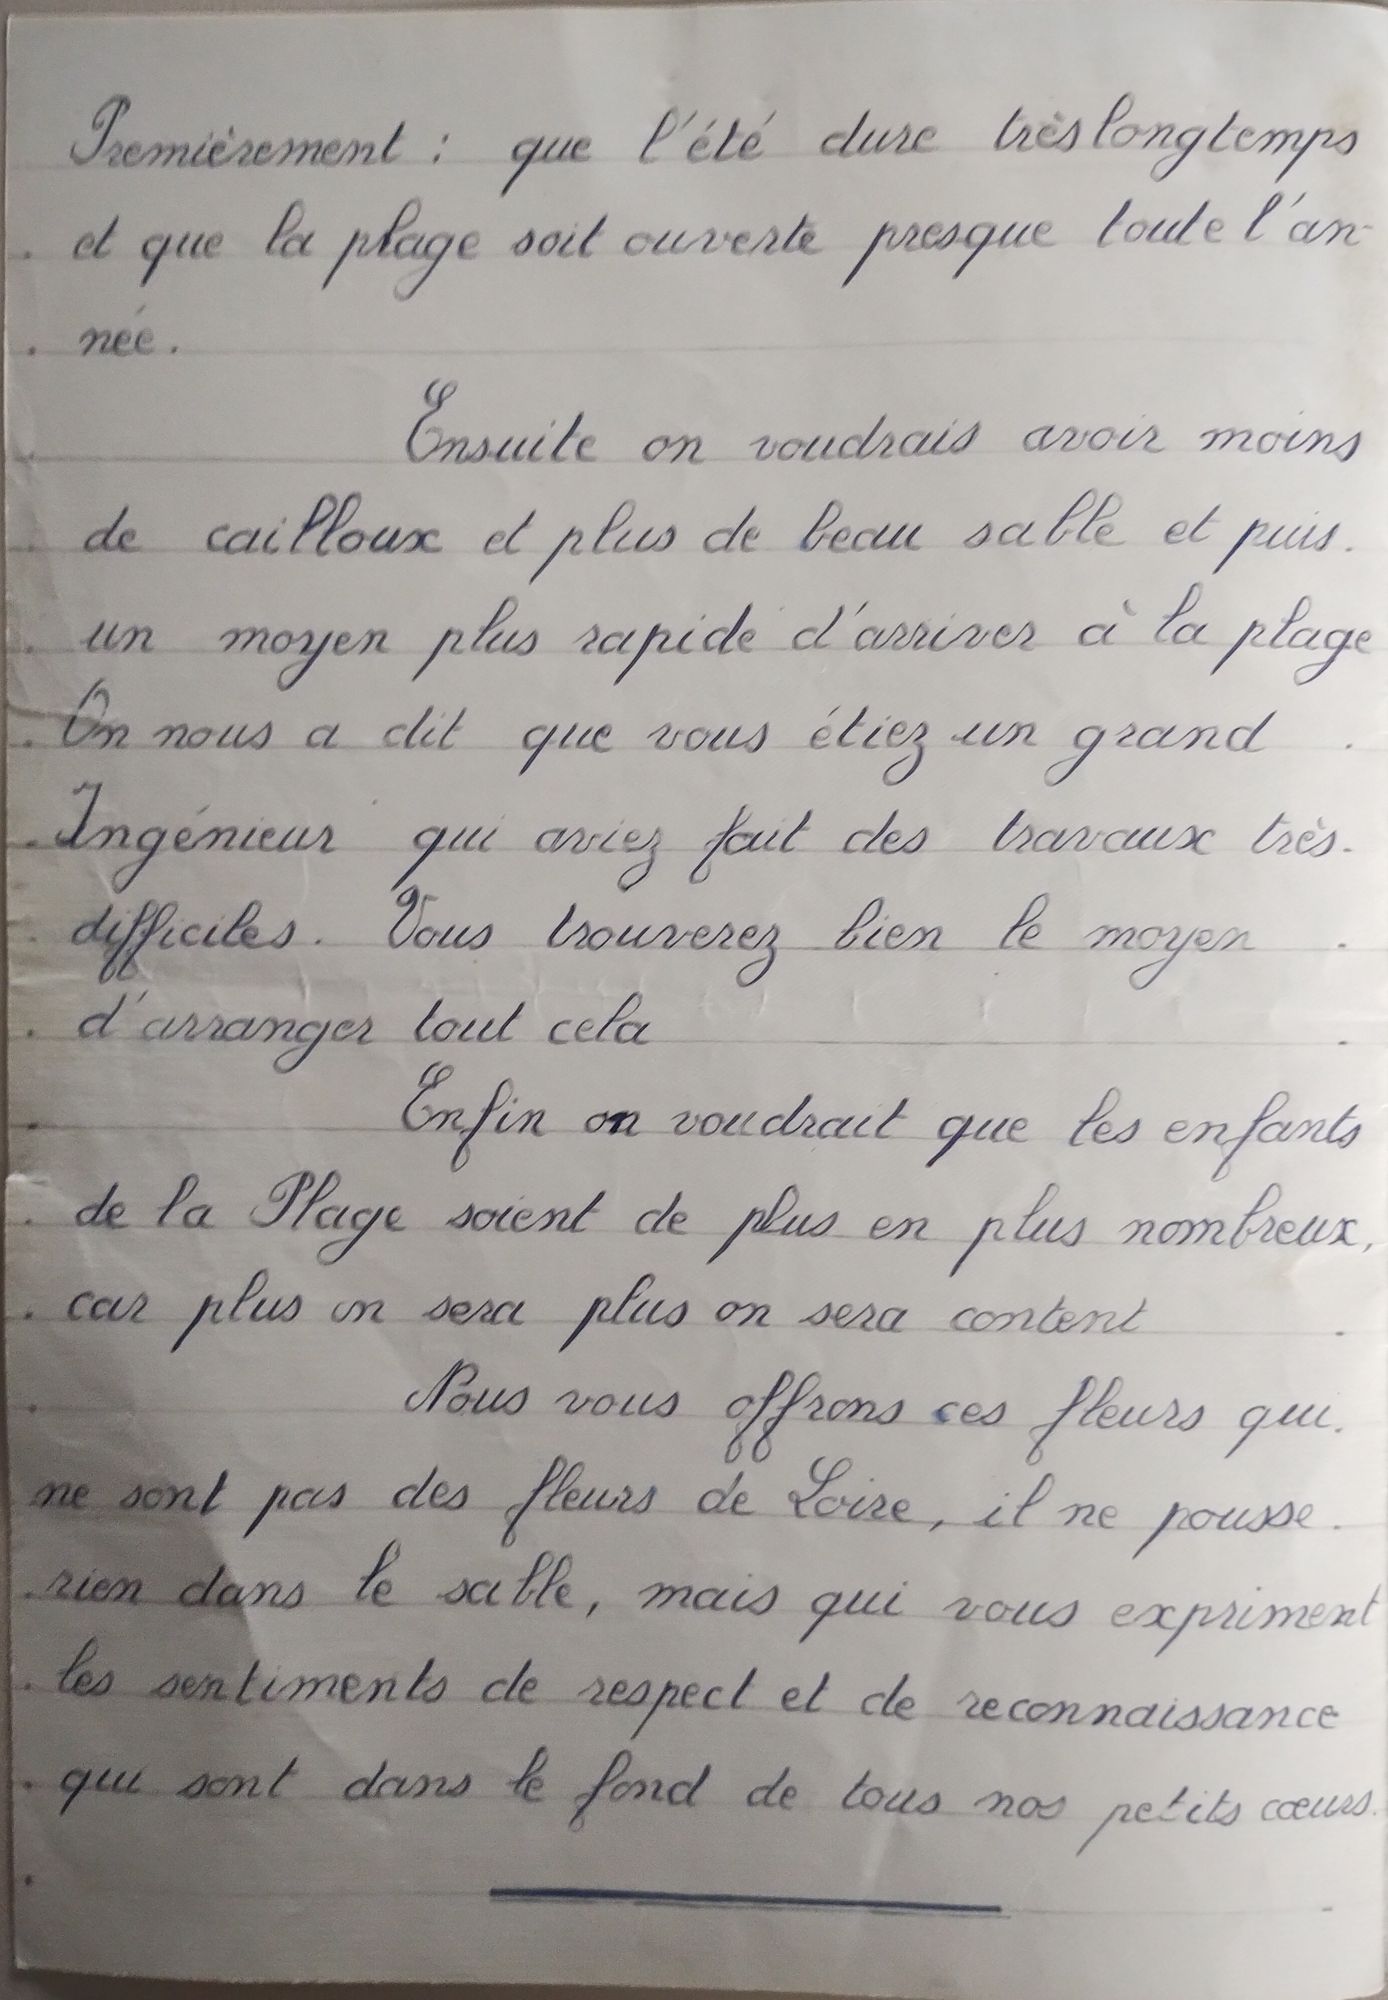 Premièrement : que l'été dure très longtemps
et que la plage soit ouverte presque toute l'an-
née.
Ensuite on voudrais avoir moins
de cailloux et plus de beau sable et puis.
un moyen plus rapide d'arriver à la plage
On nous a dit que vous étiez un grand
Ingénieur qui aviez fait des travaux très.
difficiles. Vous trouverez bien le moyen
d'arranger tout cela
Enfin on voudrait que les enfants
de la Plage soient de plus en plus nombreux,
car plus on sera plus on sera content
Nous vous offrons ces fleurs qui.
ne sont pas des fleurs de Loire, il ne pousse.
rien dans le sable, mais qui vous expriment
les sentiments de respect et de reconnaissance
qui sont dans le fond de tous nos petits cœurs.